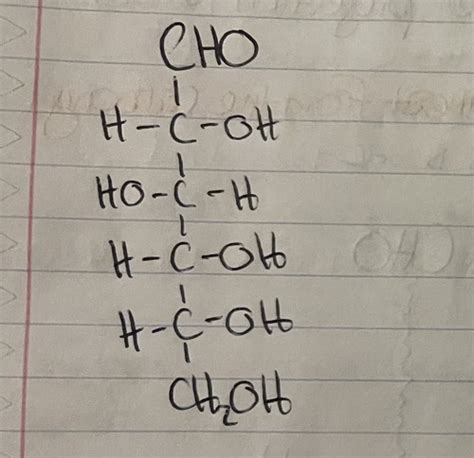 CHO
H-C-OH
HO-C-H
H-C-OH
H-C-OH
CH₂OH